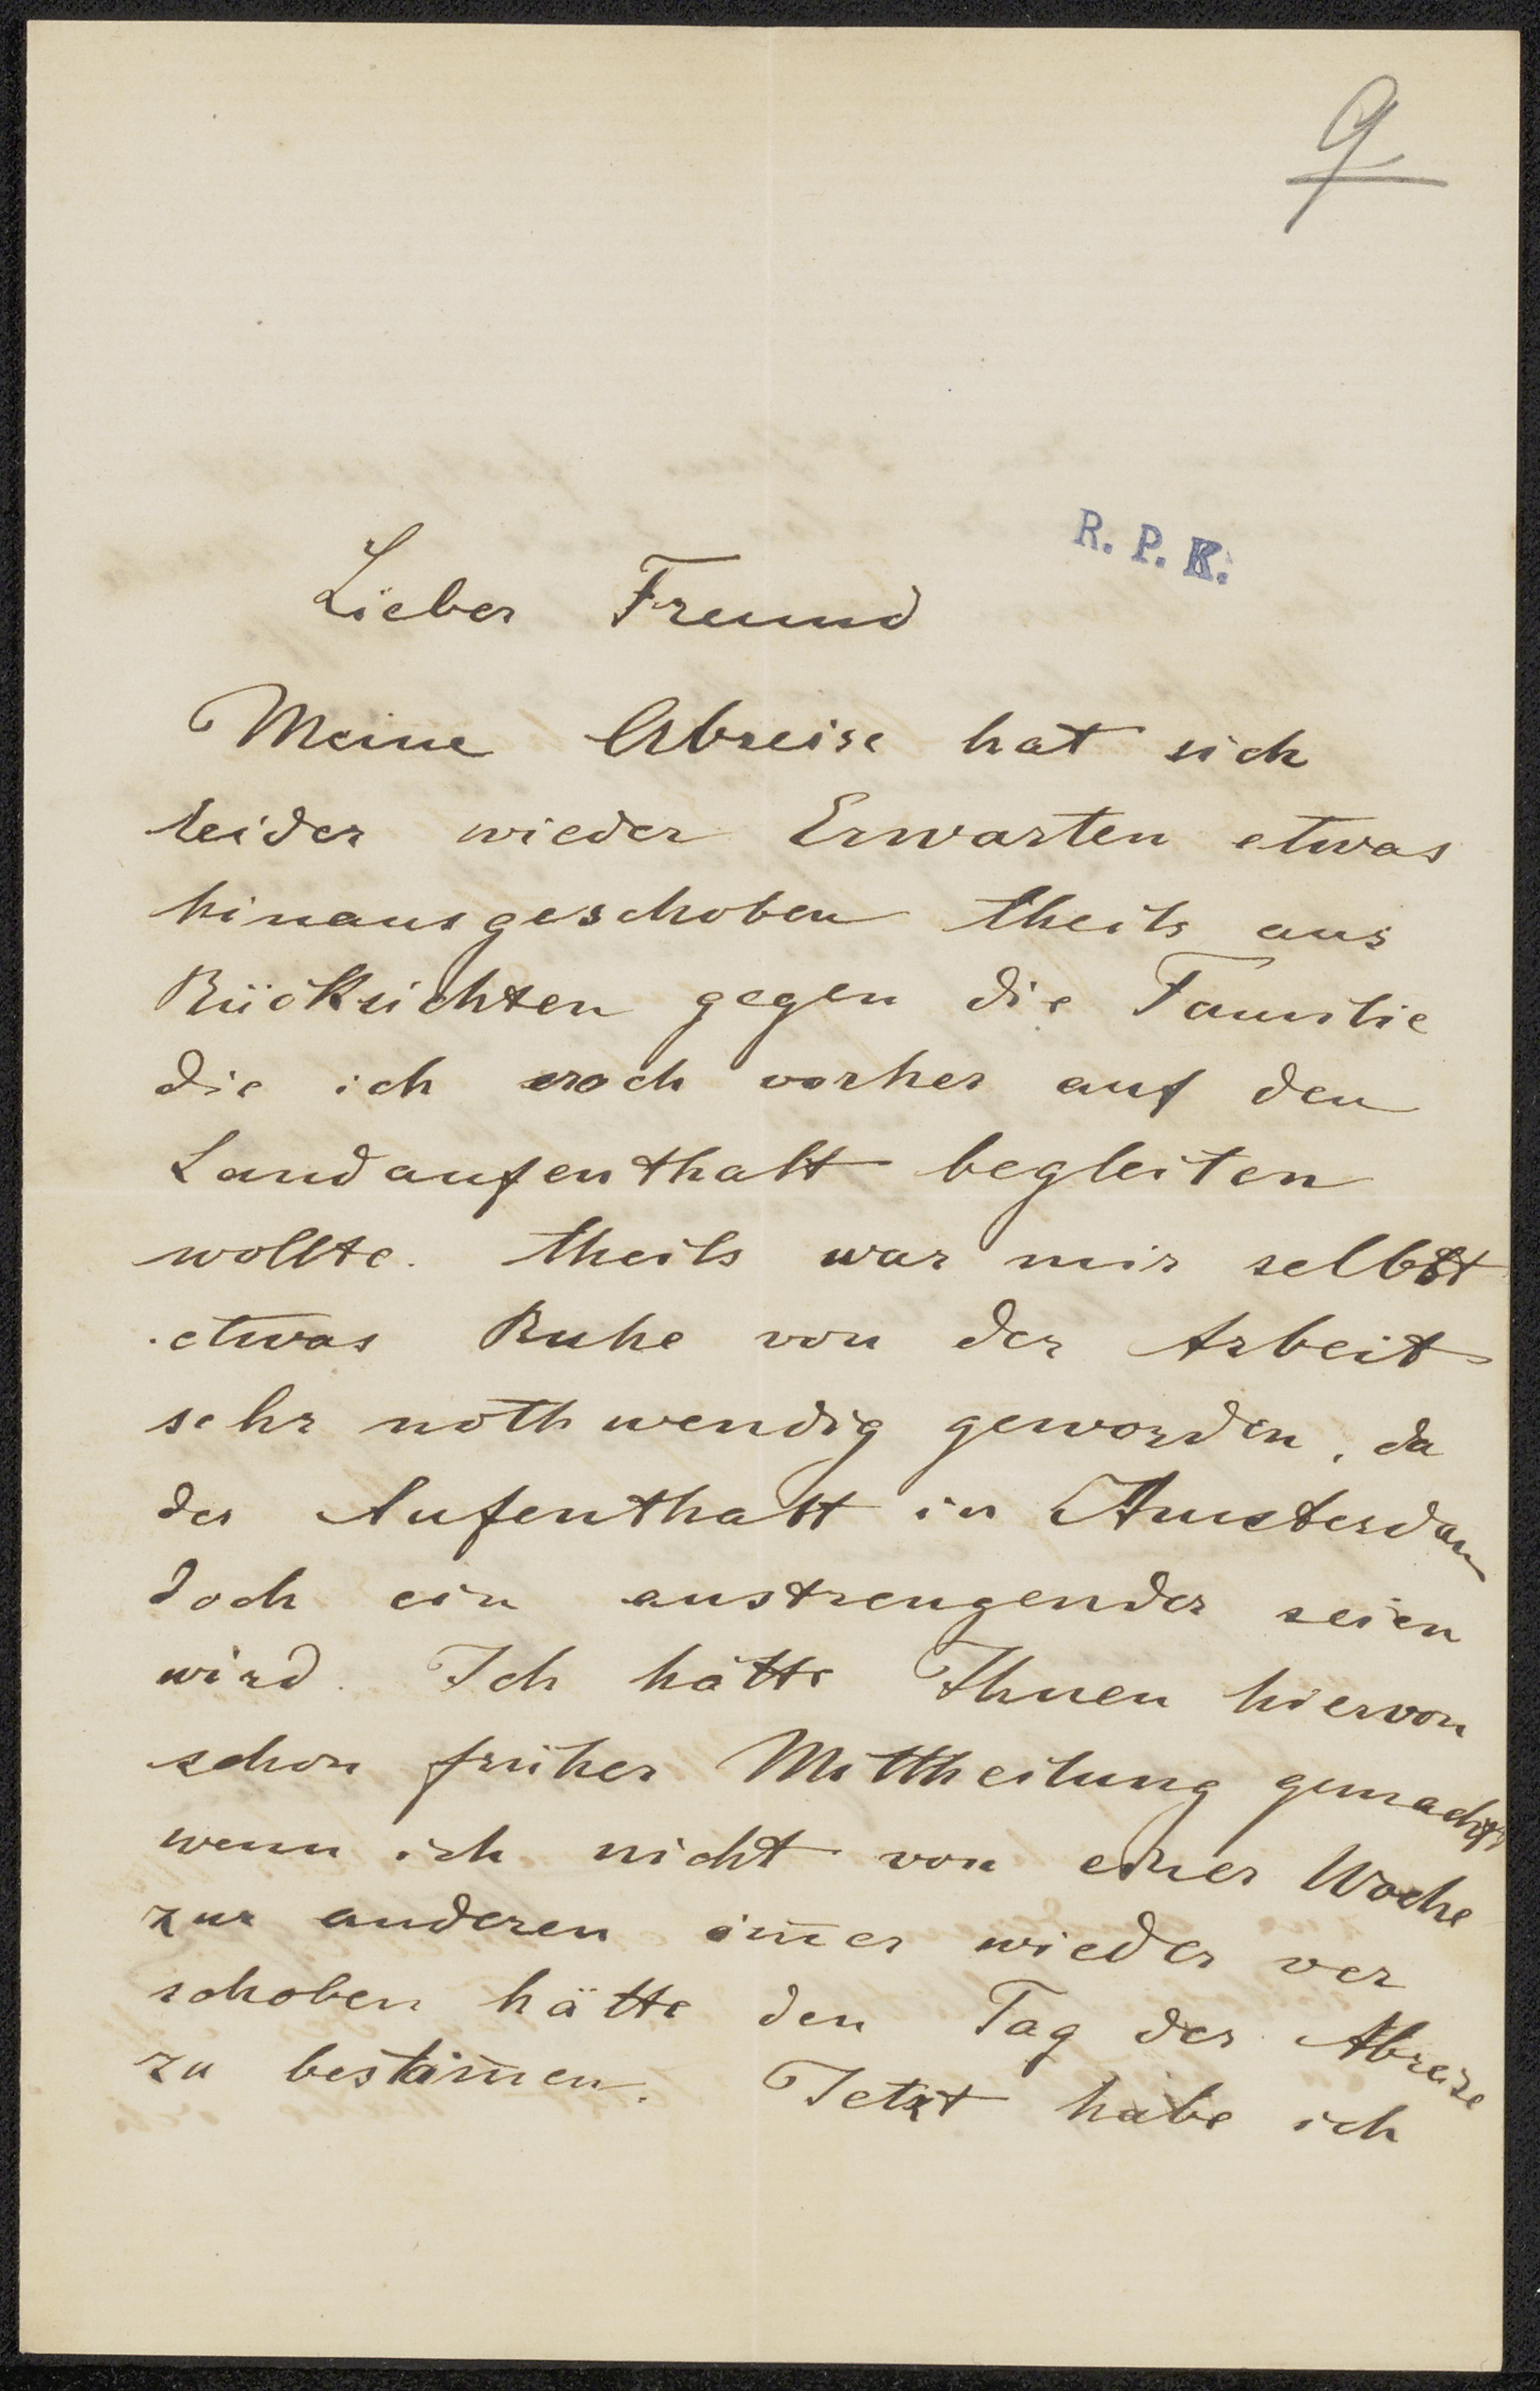 9
R. P. K.
Lieber Freund
Meine Abreise hat sich
leider wieder Erwarten etwas
hinausgeschoben theils aus
Rücksichten gegen die Familie
die ich noch vorher auf den
Landaufenthalt begleiten
wollte. theils war mir selbst
etwas Ruhe von der Arbeit
sehr nothwendig geworden, da
der Aufenthalt in Amsterdam
doch ein anstrengender seien
wird. Ich hätte Ihnen hiervon
schon früher Mittheilung gemacht
wenn ich nicht von einer Woche
zur anderen im̅er wieder ver
schoben hätte den Tag der Abreise
zu bestim̅en. Jetzt habe ich